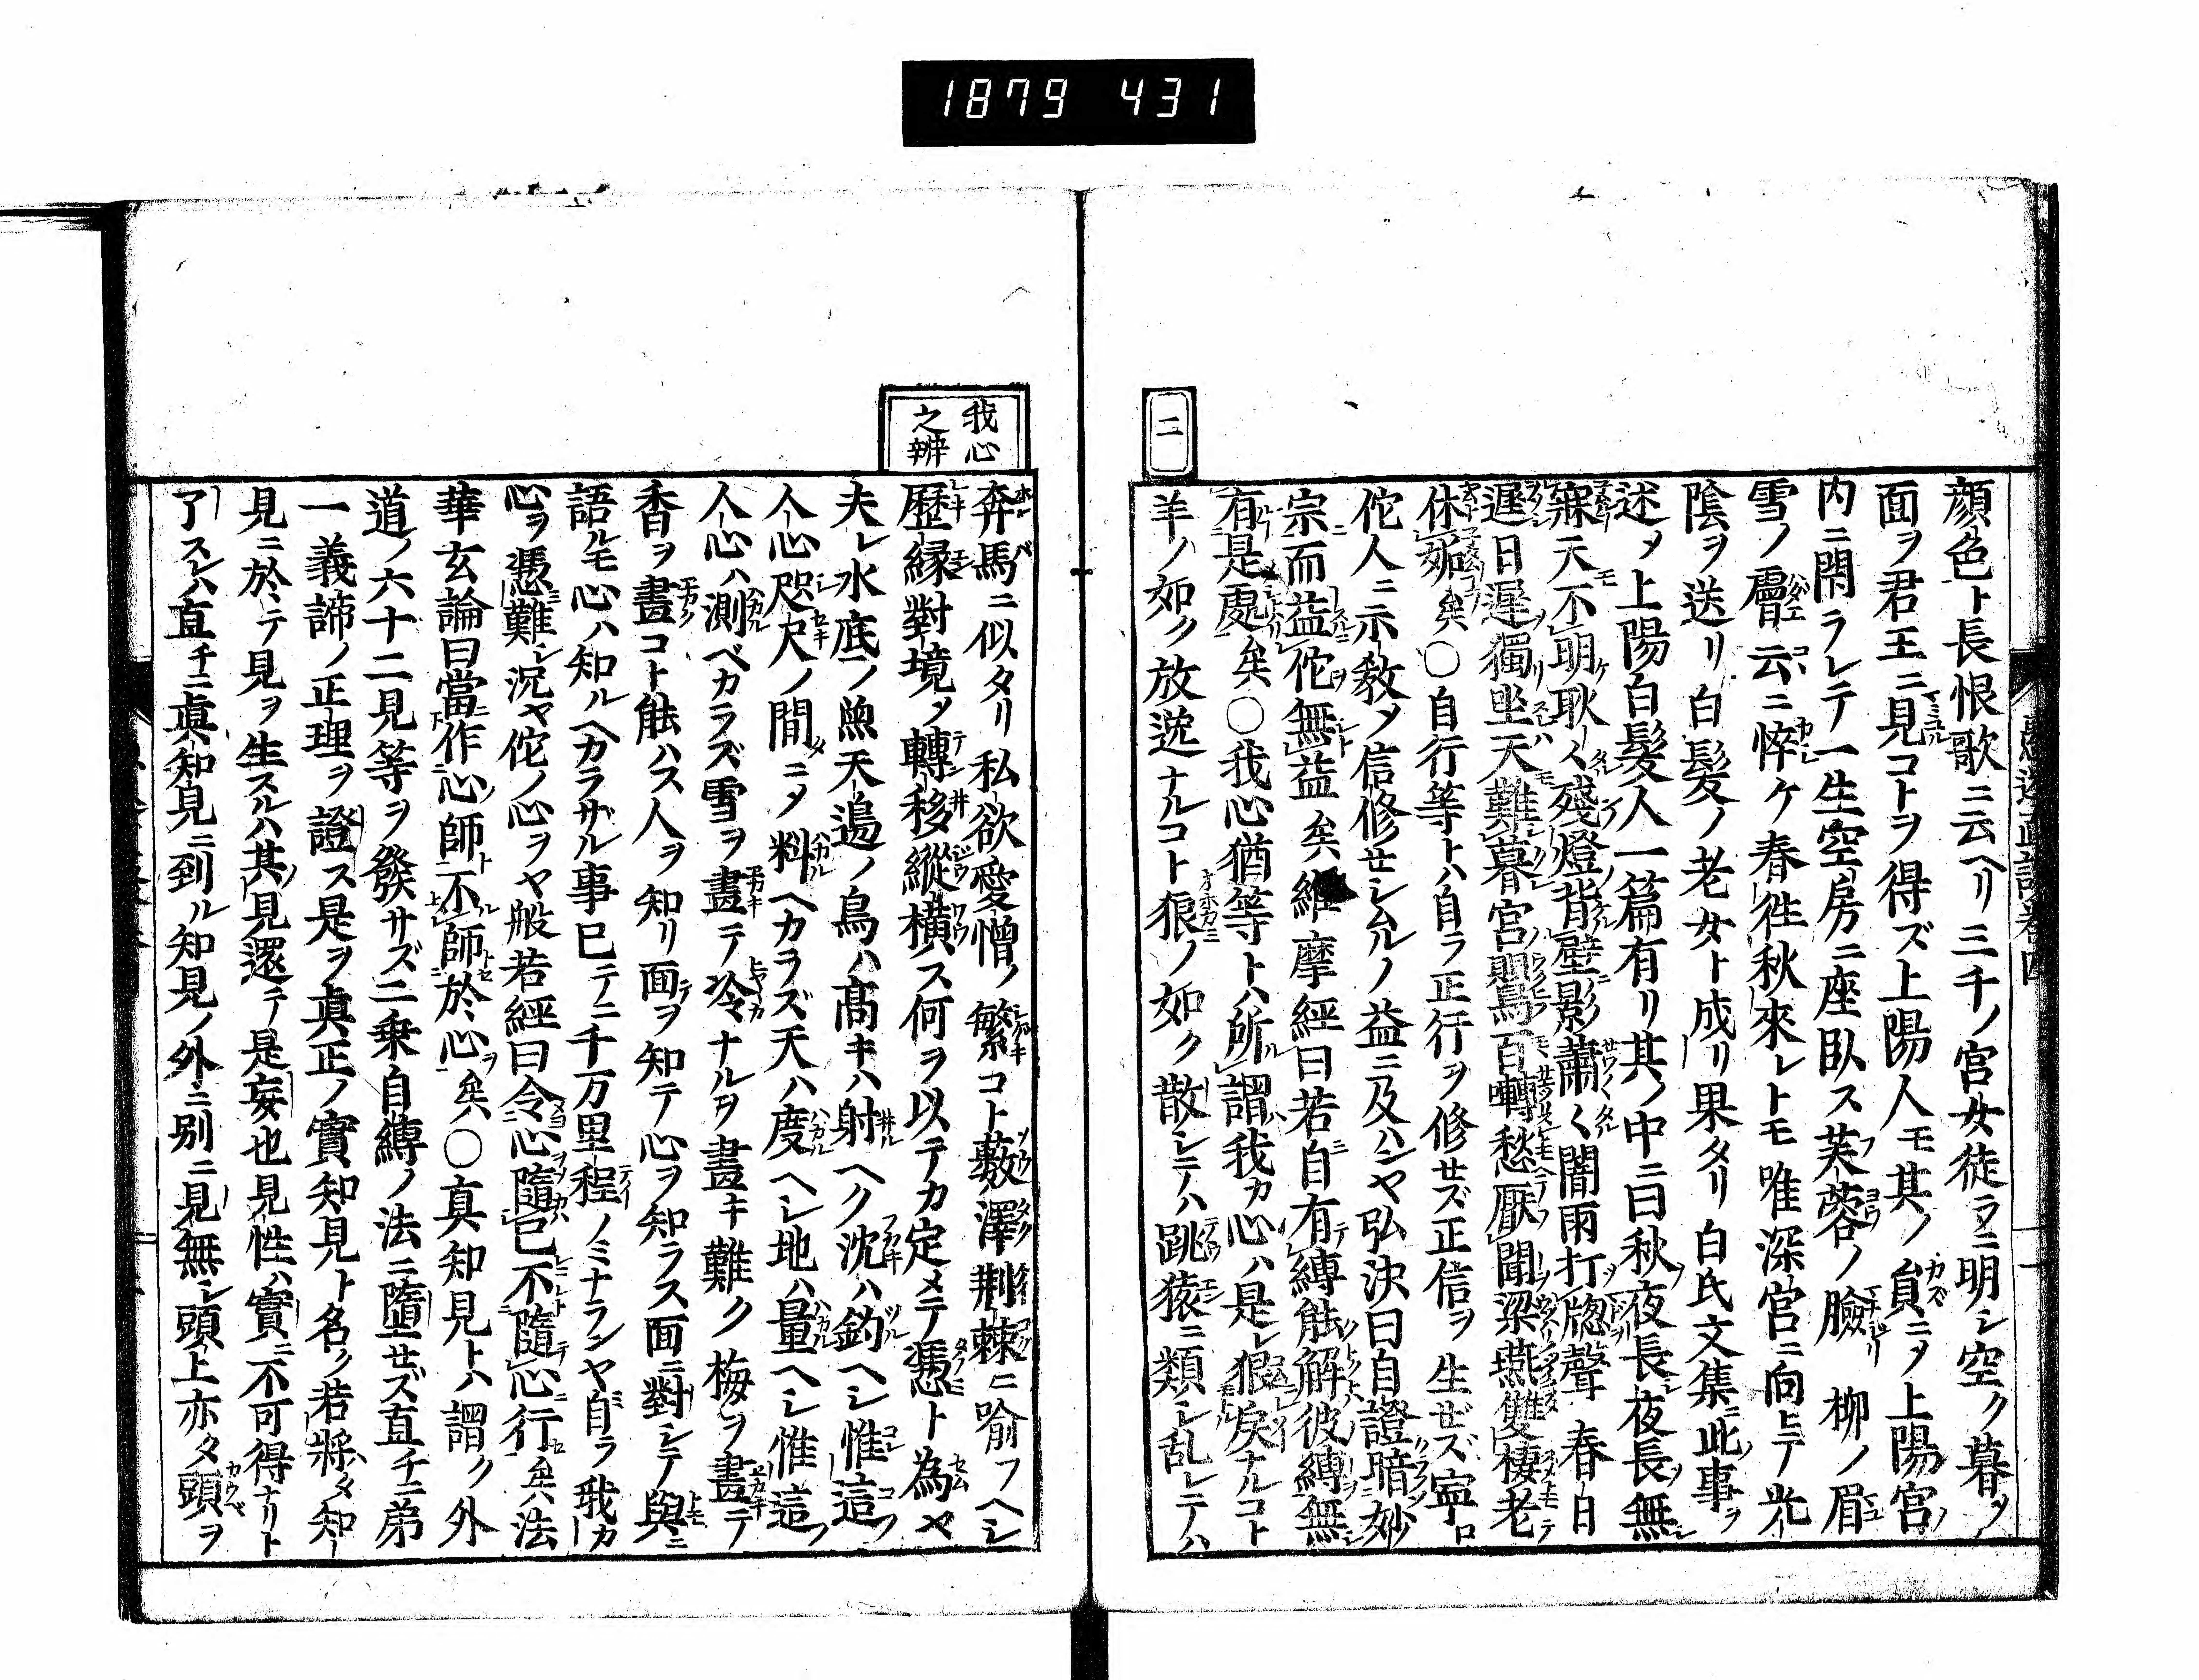 1879 431
顔色ト長恨歌ニ云ヘリ三千ノ宮女徒ラニ明シ空ク暮ソ
面ヲ君王ニ見コトヲ得ズ上陽人モ其ノ員ニソ上陽宮ノ
内ニ閇ラレテ一生空房ニ座臥ス芙蓉ノ臉柳ノ眉
雪ノ膚云云ニ悴ケ春徃秋來レトモ唯深宮ニ向ヒテ光
陰ヲ送リ白髮ノ老女ト成リ果タリ白氏文集ニ此事ヲ
述ソ上陽白髮人一篇有リ其ノ中ニ曰秋夜長夜長無
寐天不明耿々殘燈背壁影蕭々闇雨打牕聲春日
遲日遲獨坐天難暮宮鶯百囀愁厭聞梁燕雙棲老
休妬矣〇自行等トハ自ラ正行ヲ修セズ正信ヲ生ゼズ寧ロ
佗人ニ示教ソ信修セシムルノ益ニ及ハンヤ弘決曰自證暗妙
宗而益佗無益矣維摩經曰若自有縛能解彼縛無
有是處矣〇我心猶等トハ所謂我カ心ハ是レ狠戾ナルコト
羊ノ如ク放逸ナルコト狼ノ如ク散シテハ跳猿ニ類シ乱レテハ
二
我心
之辨
奔馬ニ似タリ私欲愛憎ノ繁コト藪澤荆棘ニ喻フヘシ
歷縁對境ソ轉移縱橫ス何ヲ以テカ定メテ憑ト為ヤ
夫レ水底ノ魚天邉ノ鳥ハ髙キハ射ヘク沈ハ釣ヘシ惟這
人心咫尺ノ間ニソ料ヘカラズ天ハ度ヘシ地ハ量ヘシ惟這
人心ハ測ベカラズ雪ヲ畫テ冷ナルヲ畫キ難ク梅ヲ畫テ
香ヲ畫コト能ハス人ヲ知リ面ヲ知テ心ヲ知ラス面ニ對シテ與ニ
語ルモ心ハ知ルヘカラサル事已テニ千万里程ノミナランヤ自ラ我カ
心ヲ憑難シ況ヤ佗ノ心ヲヤ般若經曰令心隨已不隨心行矣法
華玄論曰當作心師不師於心矣〇真知見トハ謂ク外
道ノ六十二見等ヲ發サズ二乗自縛ノ法ニ墮セズ直チニ弟
一義諦ノ正理ヲ證ス是ヲ眞正ノ實知見ト名ク若將タ知
見ニ於テ見ヲ生スルハ其見還テ是妄也見性ハ實ニ不可得ナリト
了スレハ直チニ眞知見ニ到ル知見ノ外ニ別ニ見無シ頭上亦タ頭ヲ